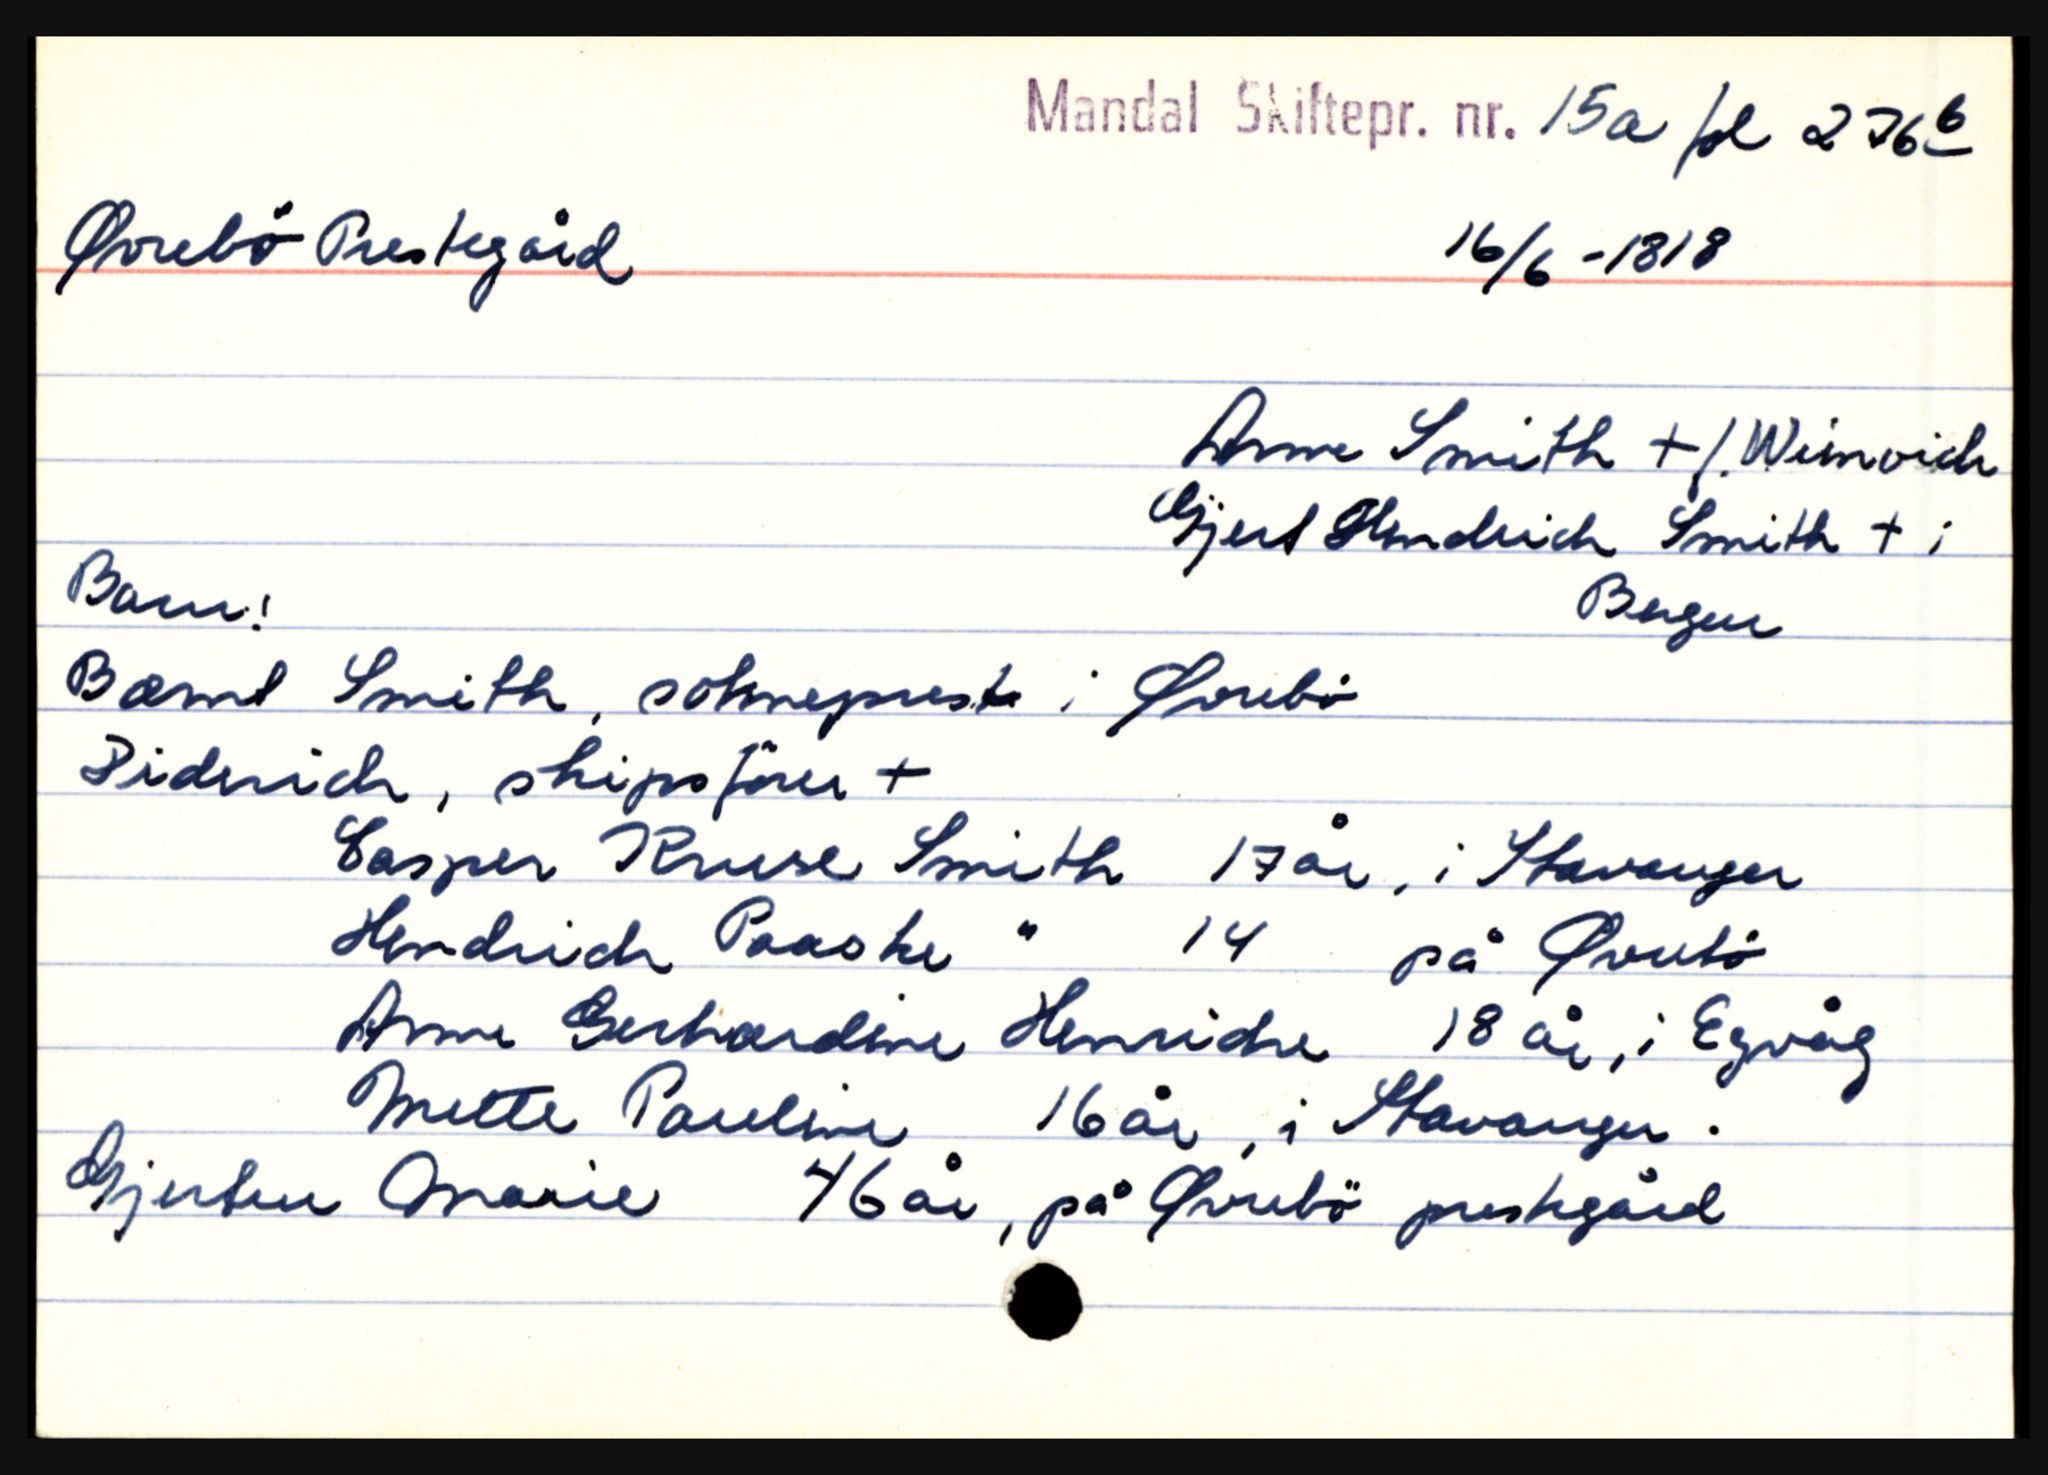 Mandal Skiftepr. nr. 15a fol 276b
Øvrebö Prestegård 16/6 -1818
Anne Smith + f. Weinvich
Gjert Hendrich Smith + i
Bergen
Barn:
Bærnt Smith, soknepreste i Øvrebö
Diderich, skipsförer +
Casper Kruse Smith 17 år, i Stavanger
Hendrich Paaske " 14 på Øvrebö
Anne Gerhardine Henriche 18 år, i Egvåg
Mette Pauline 16 år, i Stavanger.
Gjertru Marie 46 år, på Øvrebö prestegård